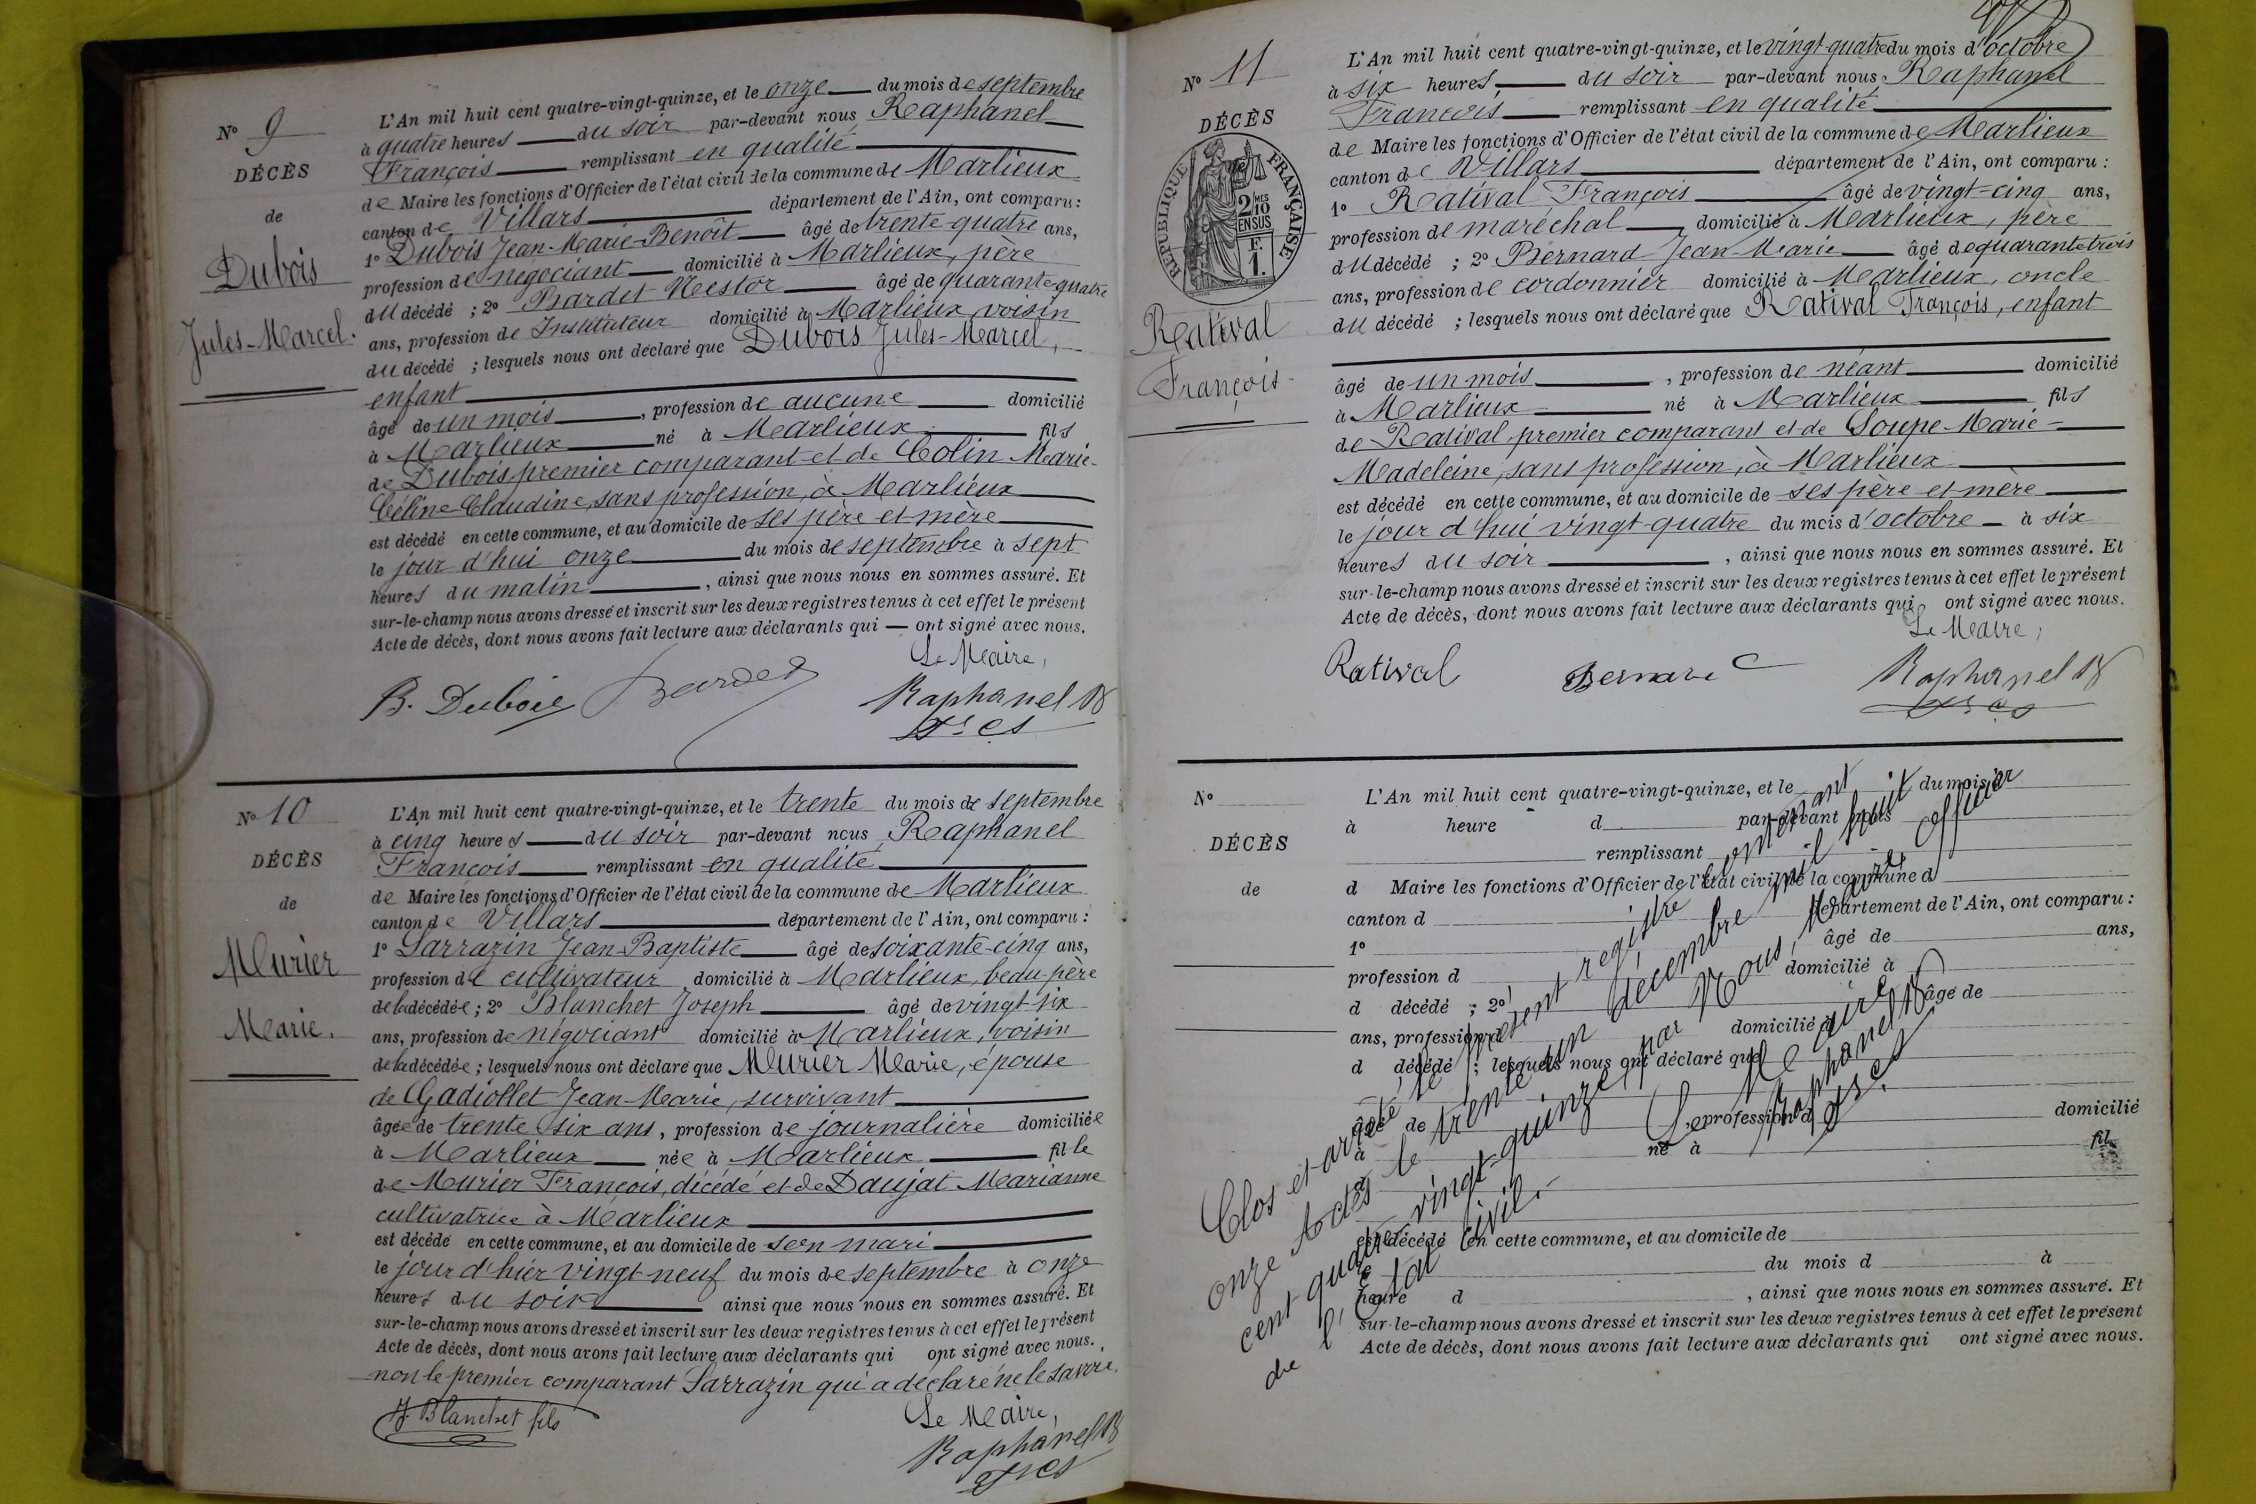 N° 9
DÉCÈS
de
Dubois
Jules-Marcel.
L'An mil huit cent quatre-vingt-quinze, et le onze du mois de septembre
à quatre heures du soir par-devant nous Raphanel
François remplissant en qualité
de Maire les fonctions d'Officier de l'état civil de la commune de Marlieux
canton de Villars département de l'Ain, ont comparu :
1° Dubois Jean-Marie-Benoît âgé de trente-quatre ans,
profession de négociant domicilié à Marlieux, père
du décédé ; 2° Bardet Nestor âgé de quarante-quatre
ans, profession de Instituteur domicilié à Marlieux, voisin
du décédé ; lesquels nous ont déclaré que Dubois Jules-Marcel,
enfant
âgé de un mois, profession de aucune domicilié
à Marlieux né à Marlieux fils
de Dubois premier comparant et de Colin Marie-
Céline Claudine, sans profession, à Marlieux
est décédé en cette commune, et au domicile de ses père et mère
le jour d'hui onze du mois de septembre à sept
heures du matin, ainsi que nous nous en sommes assuré. Et
sur-le-champ nous avons dressé et inscrit sur les deux registres tenus à cet effet le présent
Acte de décès, dont nous avons fait lecture aux déclarants qui — ont signé avec nous.
Le Maire,
B. Dubois Bardet Raphanel
N° 10
DÉCÈS
de
Murier
Marie.
L'An mil huit cent quatre-vingt-quinze, et le trente du mois de septembre
à cinq heures du soir par-devant nous Raphanel
François remplissant en qualité
de Maire les fonctions d'Officier de l'état civil de la commune de Marlieux
canton de Villars département de l'Ain, ont comparu :
1° Sarrazin Jean-Baptiste âgé de soixante-cinq ans,
profession de cultivateur domicilié à Marlieux, beau-père
de la décédée ; 2° Blanchet Joseph âgé de vingt-six
ans, profession de négociant domicilié à Marlieux, voisin
de la décédée ; lesquels nous ont déclaré que Murier Marie, épouse
de Gadiollet Jean-Marie, survivant
âgée de trente six ans, profession de journalière domiciliée
à Marlieux née à Marlieux fille
de Murier François, décédé et de Daujat Marianne
cultivatrice à Marlieux
est décédé en cette commune, et au domicile de son mari
le jour d'hier vingt-neuf du mois de septembre à onze
heures du soir ainsi que nous nous en sommes assuré. Et
sur-le-champ nous avons dressé et inscrit sur les deux registres tenus à cet effet le présent
Acte de décès, dont nous avons fait lecture aux déclarants qui ont signé avec nous.
non le premier comparant Sarrazin qui a déclaré ne le savoir.
Le Maire,
J Blanchet fils Raphanel
N° 11
DÉCÈS
RÉPUBLIQUE FRANÇAISE
2 MES
10
EN SUS
F.
1.
Ratival
François-
L'An mil huit cent quatre-vingt-quinze, et le vingt-quatre du mois d'octobre
à six heures du soir par-devant nous Raphanel
François remplissant en qualité
de Maire les fonctions d'Officier de l'état civil de la commune de Marlieux
canton de Villars département de l'Ain, ont comparu :
1° Ratival François âgé de vingt-cinq ans,
profession de maréchal domicilié à Marlieux, père
du décédé ; 2° Bernard Jean-Marie âgé de quarante trois
ans, profession de cordonnier domicilié à Marlieux, oncle
du décédé ; lesquels nous ont déclaré que Ratival François, enfant
âgé de un mois, profession de néant domicilié
à Marlieux né à Marlieux fils
de Ratival, premier comparant et de Soupe Marie-
Madeleine, sans profession, à Marlieux
est décédé en cette commune, et au domicile de ses père et mère
le jour d'hui vingt-quatre du mois d'octobre à six
heures du soir, ainsi que nous nous en sommes assuré. Et
sur-le-champ nous avons dressé et inscrit sur les deux registres tenus à cet effet le présent
Acte de décès, dont nous avons fait lecture aux déclarants qui ont signé avec nous.
Le Maire,
Ratival Bernard Raphanel
N°
DÉCÈS
de
L'An mil huit cent quatre-vingt-quinze, et le du mois d
à heure d par-devant nous
remplissant
d Maire les fonctions d'Officier de l'état civil de la commune d
canton d département de l'Ain, ont comparu :
1° âgé de ans,
profession d domicilié à
d décédé ; 2° âgé de
ans, profession d domicilié à
d décédé ; lesquels nous ont déclaré que
âgé de profession d domicilié
à né à fil
d
est décédé en cette commune, et au domicile de
le du mois d à
heure d , ainsi que nous nous en sommes assuré. Et
sur-le-champ nous avons dressé et inscrit sur les deux registres tenus à cet effet le présent
Acte de décès, dont nous avons fait lecture aux déclarants qui ont signé avec nous.
Clos et arrêté le présent registre comprenant
onze Actes le trente un décembre mil huit
cent quatre vingt-quinze, par Nous, Maire, officier
de l'Etat Civil.-
Le Maire
Raphanel